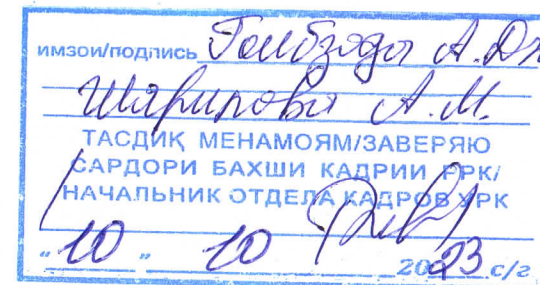 имзои/подпись Гоибзода А. Дж
Шарипова А. М.
ТАСДИҚ МЕНАМОЯМ/ЗАВЕРЯЮ
САРДОРИ БАХШИ КАДРИИ РРК/
НАЧАЛЬНИК ОТДЕЛА КАДРОВ УРК
"10" 10 2023 с/г